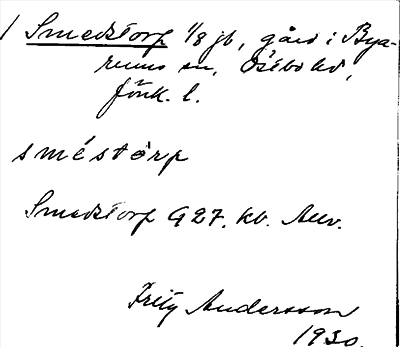 / Smedstorp 1/8 jb, gård i Bya-
rums sn, Östbo hd,
Jönk. l.
sméstórp
Smedstorp 927. kb. Auv.
Fritz Andersson
1930.